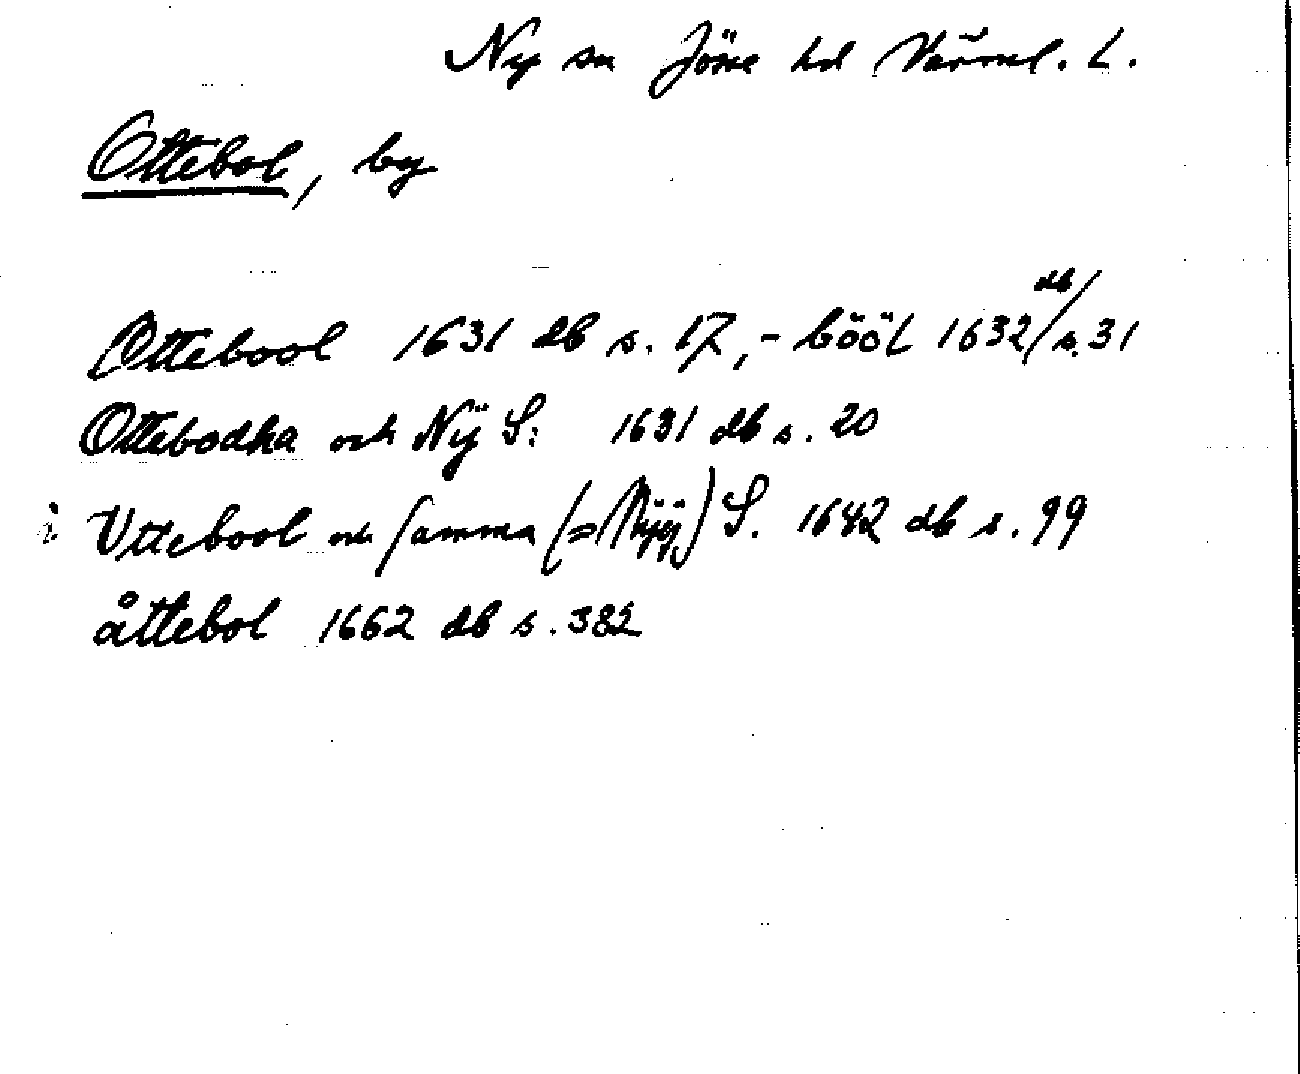 Ny sn Jösse hd Värml. L.
Ottebol, by
Ottebool 1631 db s. 17, - bööl 1632 db s. 31
Ottebodha och Nÿ S: 1631 db s. 20
i Uttebool och samma (= Nyy) S. 1642 db s. 99
åttebol 1662 db s. 382